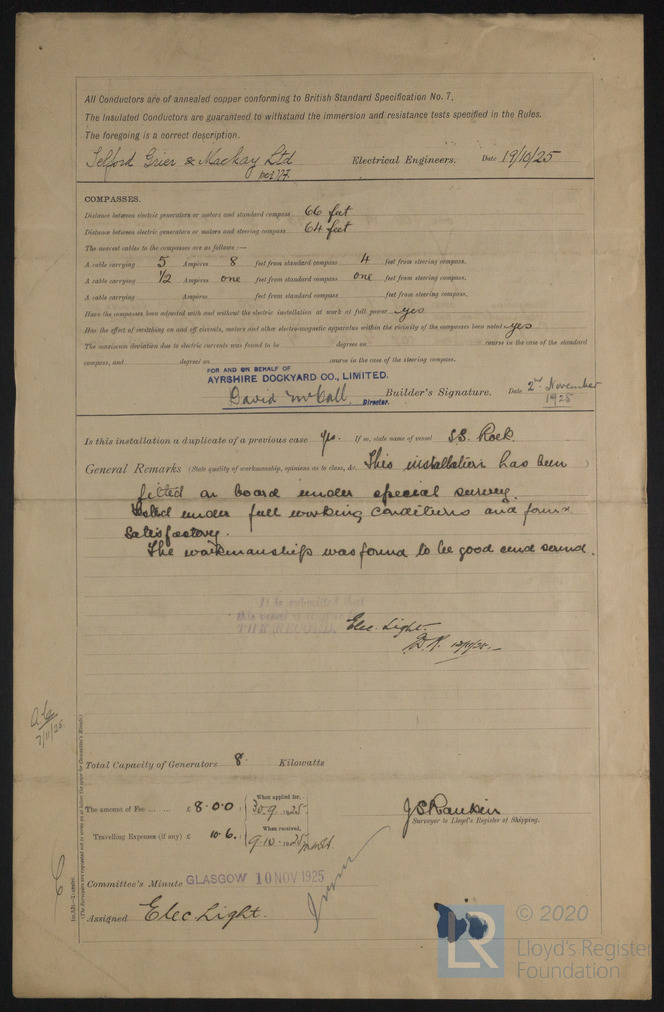 All Conductors are of annealed copper conforming to British Standard Specification No. 7.
The Insulated Conductors are guaranteed to withstand the immersion and resistance tests specified in the Rules.
The foregoing is a correct description.
Telford Grier & Mackay Ltd Electrical Engineers. Date 19/10/25
COMPASSES.
Distance between electric generators or motors and standard compass 66 feet
Distance between electric generators or motors and steering compass 64 feet
The nearest cables to the compasses are as follows :—
A cable carrying 5 Ampères 8 feet from standard compass 4 feet from steering compass.
A cable carrying 1/2 Ampères one feet from standard compass one feet from steering compass.
A cable carrying Ampères feet from standard compass feet from steering compass.
Have the compasses been adjusted with and without the electric installation at work at full power yes
Has the effect of switching on and off circuits, motors and other electro-magnetic apparatus within the vicinity of the compasses been noted yes
The maximum deviation due to electric currents was found to be degrees on course in the case of the standard
compass, and degrees on course in the case of the steering compass.
FOR AND ON BEHALF OF
AYRSHIRE DOCKYARD CO., LIMITED.
David McCall Director. Builder's Signature. Date 2nd November 1925
Is this installation a duplicate of a previous case Yes. If so, state name of vessel S.S. Rock
General Remarks (State quality of workmanship, opinions as to class, &c. This installation has been
fitted on board under special survey.
Tested under full working conditions and found
satisfactory.
The workmanship was found to be good and sound.
It is submitted that
this vessel is
THE RECORD. Elec. Light.
A.6a
7/11/25.
Total Capacity of Generators 8 Kilowatts
The amount of Fee ... ... £ 8.0.0 When applied for, 30.9.1925
Travelling Expenses (if any) £ 10.6. When received, 9.10.1925
J S Rankin
Surveyor to Lloyd's Register of Shipping.
Committee's Minute GLASGOW 10 NOV 1925
Assigned Elec Light.
LR
© 2020
Lloyd's Register
Foundation